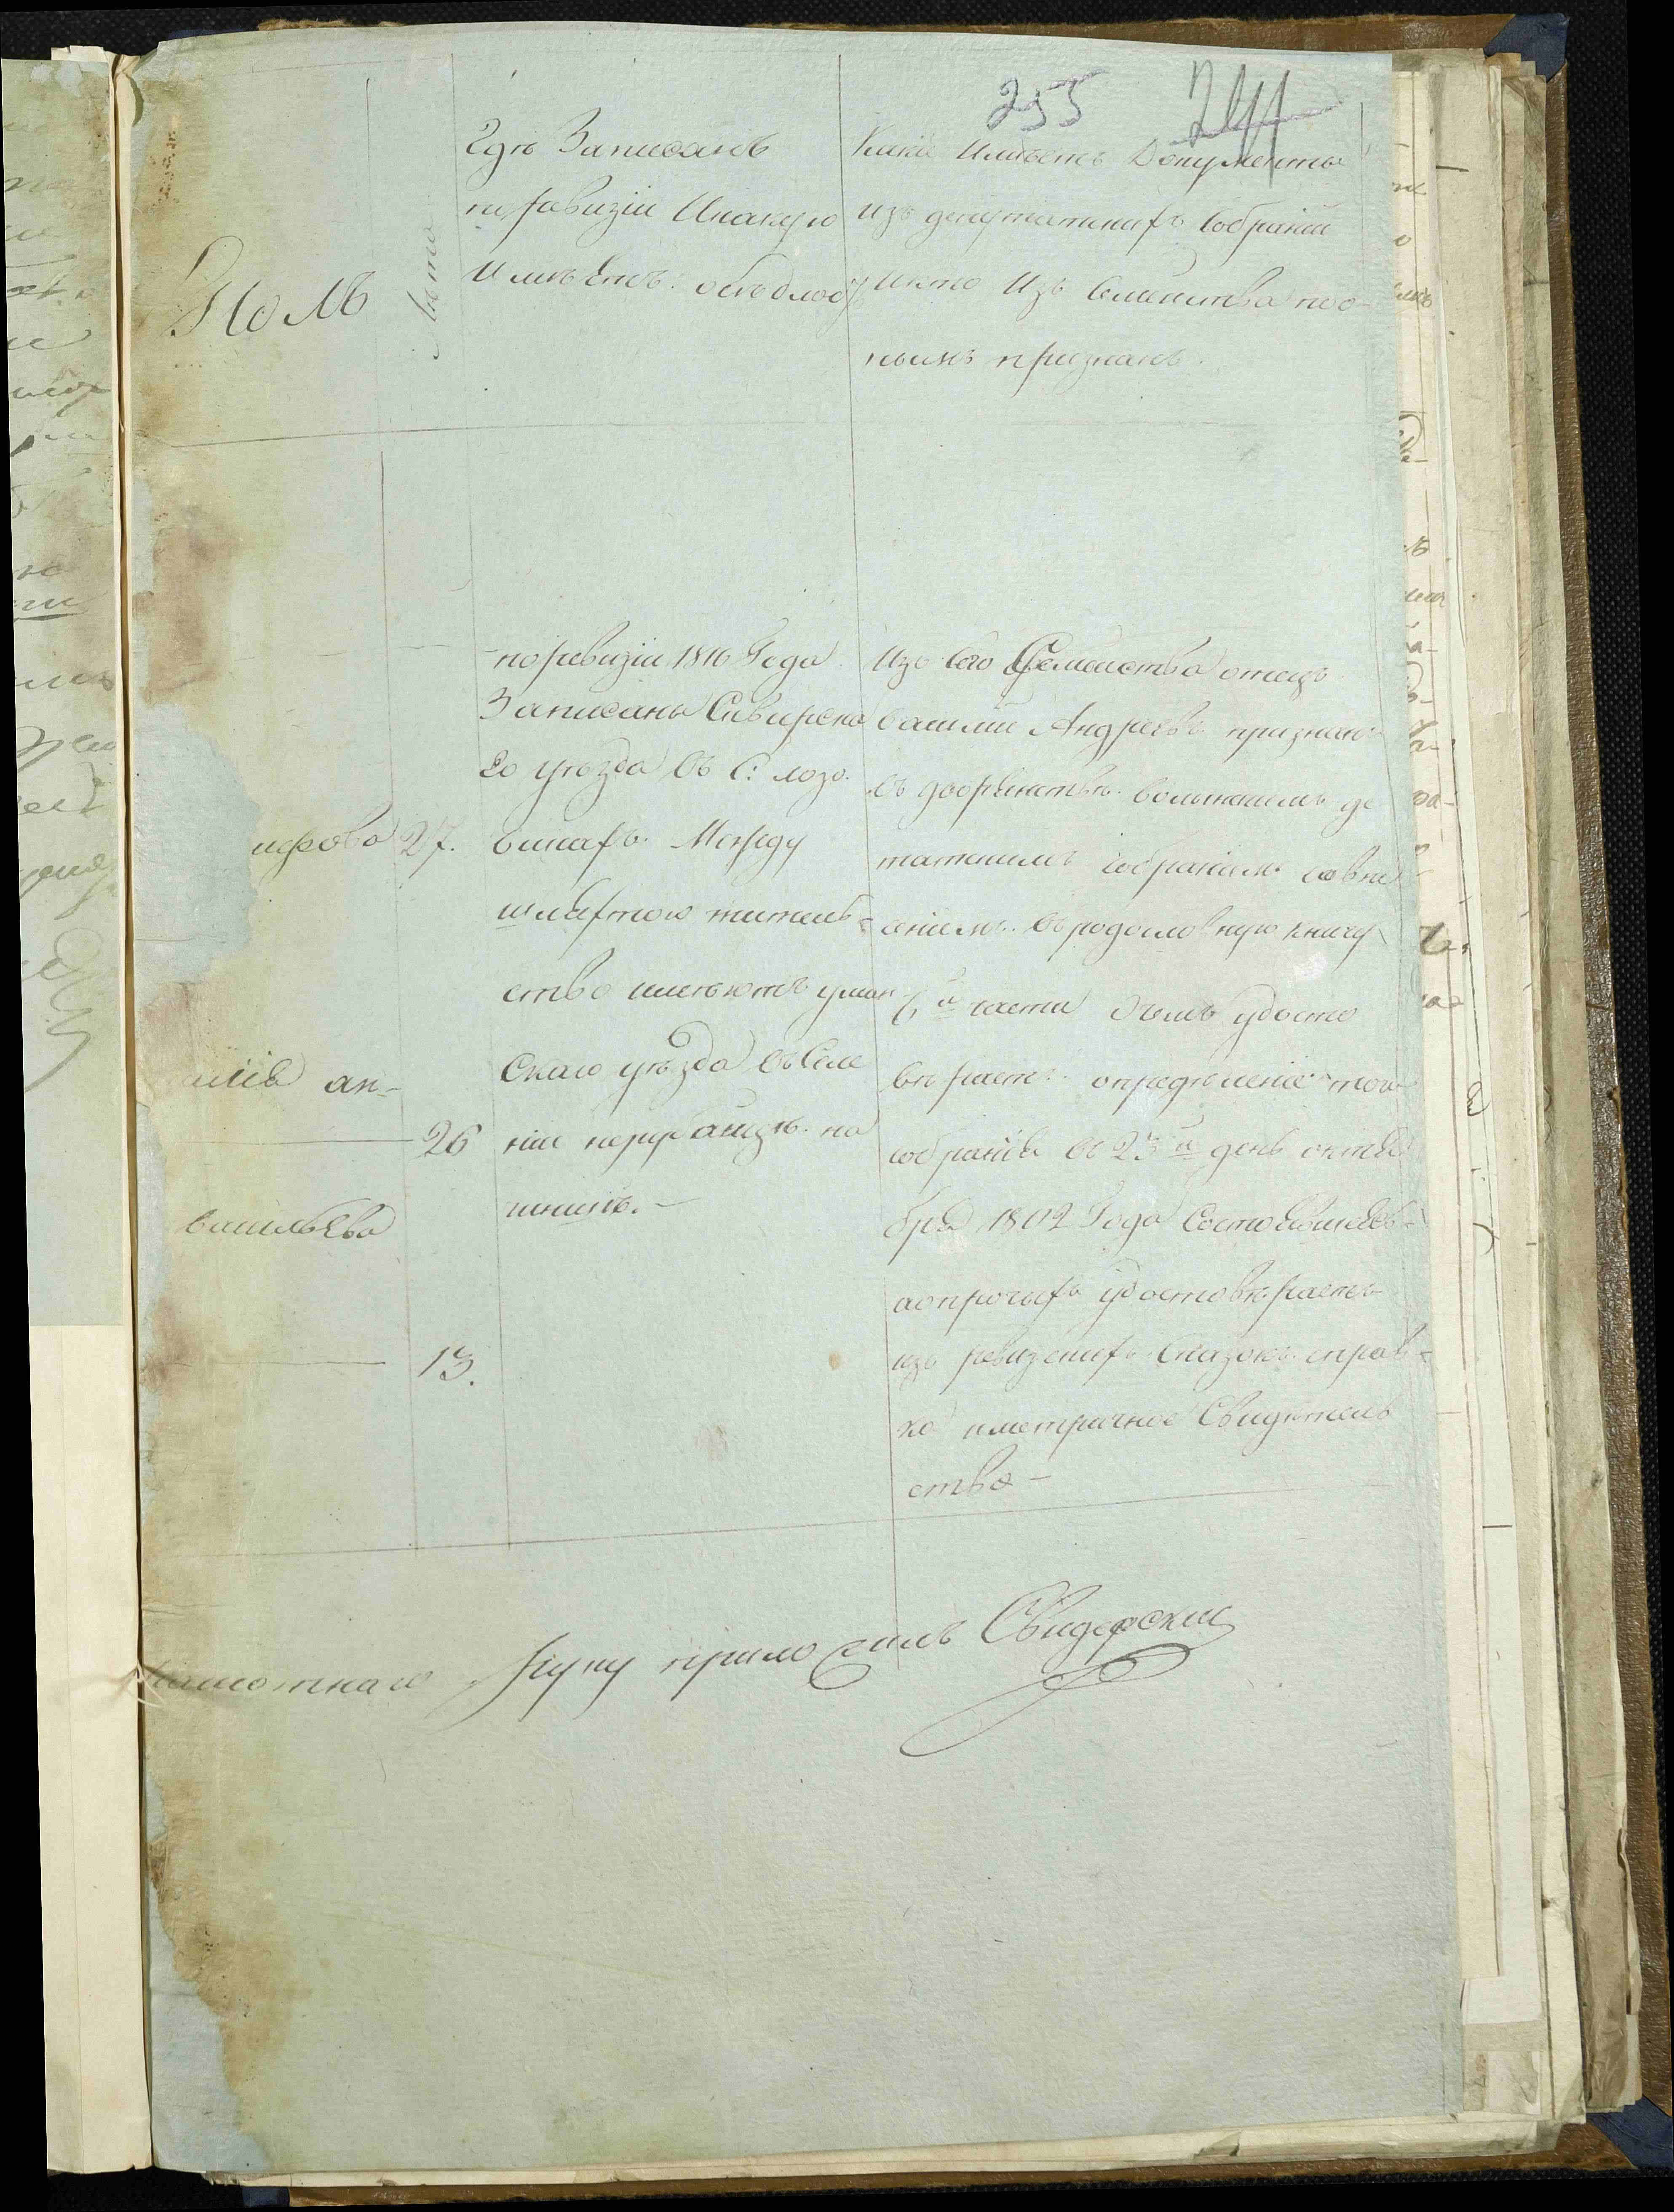 255
Гдѣ Записанъ
по ревизіи И какую
имѣетъ осѣдлость
Какіе Имѣетъ Документы
изъ депутатскихъ собраній
и кто Изъ Семейства по
нымъ признанъ.
Лѣта
по ревизіи 1816 Года
Записаны Сквирска
го уѣзда въ С: лозо
викахъ. Между
шляхтою житель
ство имѣютъ уман
Скаго уѣзда въ Селе
на
Изъ Его Семейства отецъ
василій Андреевъ признанъ
въ дворянствѣ волынскимъ де
татскимъ собраніемъ со вне
сеніемъ въ родословную книгу
6й части О чемъ удосто
вѣряетъ определеніе того
собранія въ 23й день октя
бря 1802 Года Состоявшееся
а о прочихъ удостовѣряетъ
изъ ревизскихъ Сказокъ справ
ка и метричное Свидѣтель
ство
27.
ан-
26
васильева
13.
руку приложилъ Свидерскій